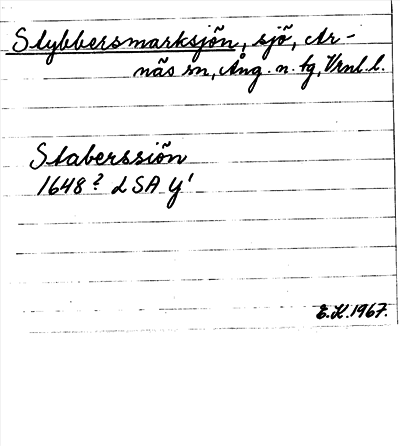 Slybbersmarksjön, sjö, Ar-
näs sn, Ång. n. tg, Vrnl. l.
Staberssiön
1648? LSA Y¹
E.K. 1967.